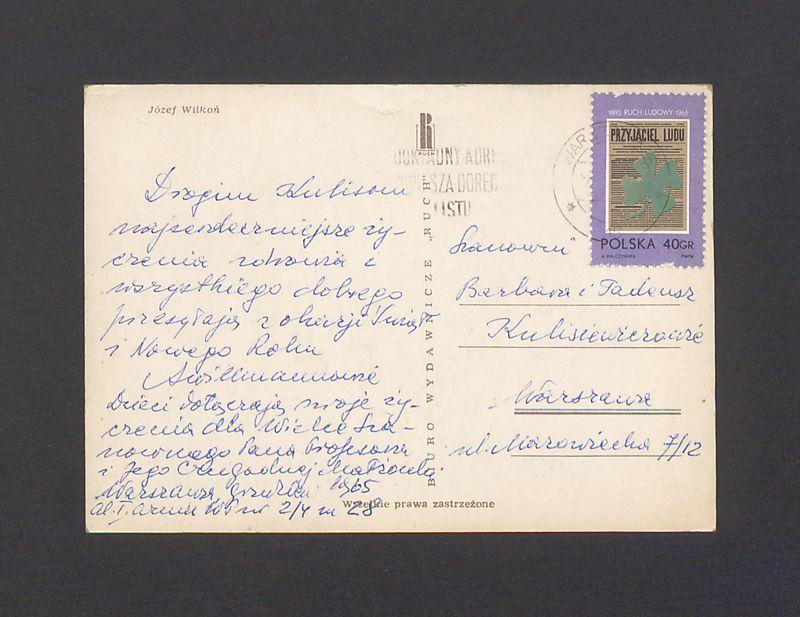 Józef Wilkoń
RUCH
DOKŁADNY ADRES
SZA DORĘC
LISTU
WAR
1895 RUCH LUDOWY 1965
PRZYJACIEL LUDU
POLSKA 40GR
A. KALCZYŃSKA PWPW
Drogim Kulisom
najserdeczniejsze ży-
czenia zdrowia i
wszystkiego dobrego
przesyłają z okazji Świąt
i Nowego Roku
Dzieci dołączają moje ży-
czenia dla Wielce Sza-
nownego Pana Profesora
i Jego Czcigodnej Małżonki
Warszawa, grudzień 1965
al. I Armii WP nr 2/4 m 28
BIURO WYDAWNICZE „RUCH”
Szanowni
Barbara i Tadeusz
Kulisiewiczowie
Warszawa
ul. Mazowiecka 7/12
Wszelkie prawa zastrzeżone